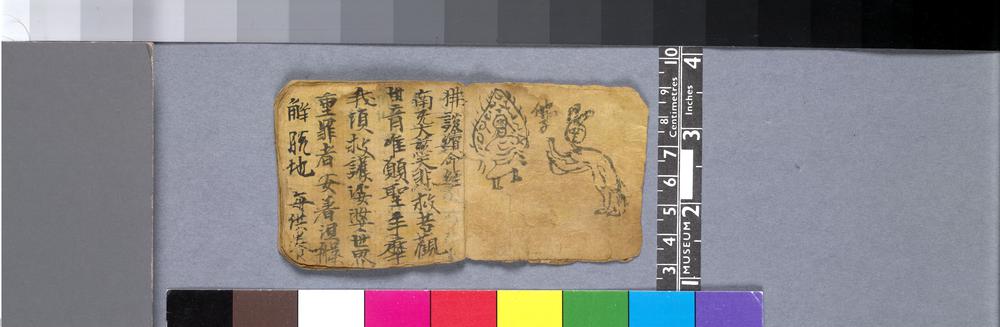 佛子
佛說續命經
南无大慈大悲救苦觀
世音唯願聖手摩
我頂救護娑婆世界
重罪者安著沮解
解脫地 每供
10
9
8
7
6
5
4
3
Centimetres
Inches
4
3
2
1
MUSEUM